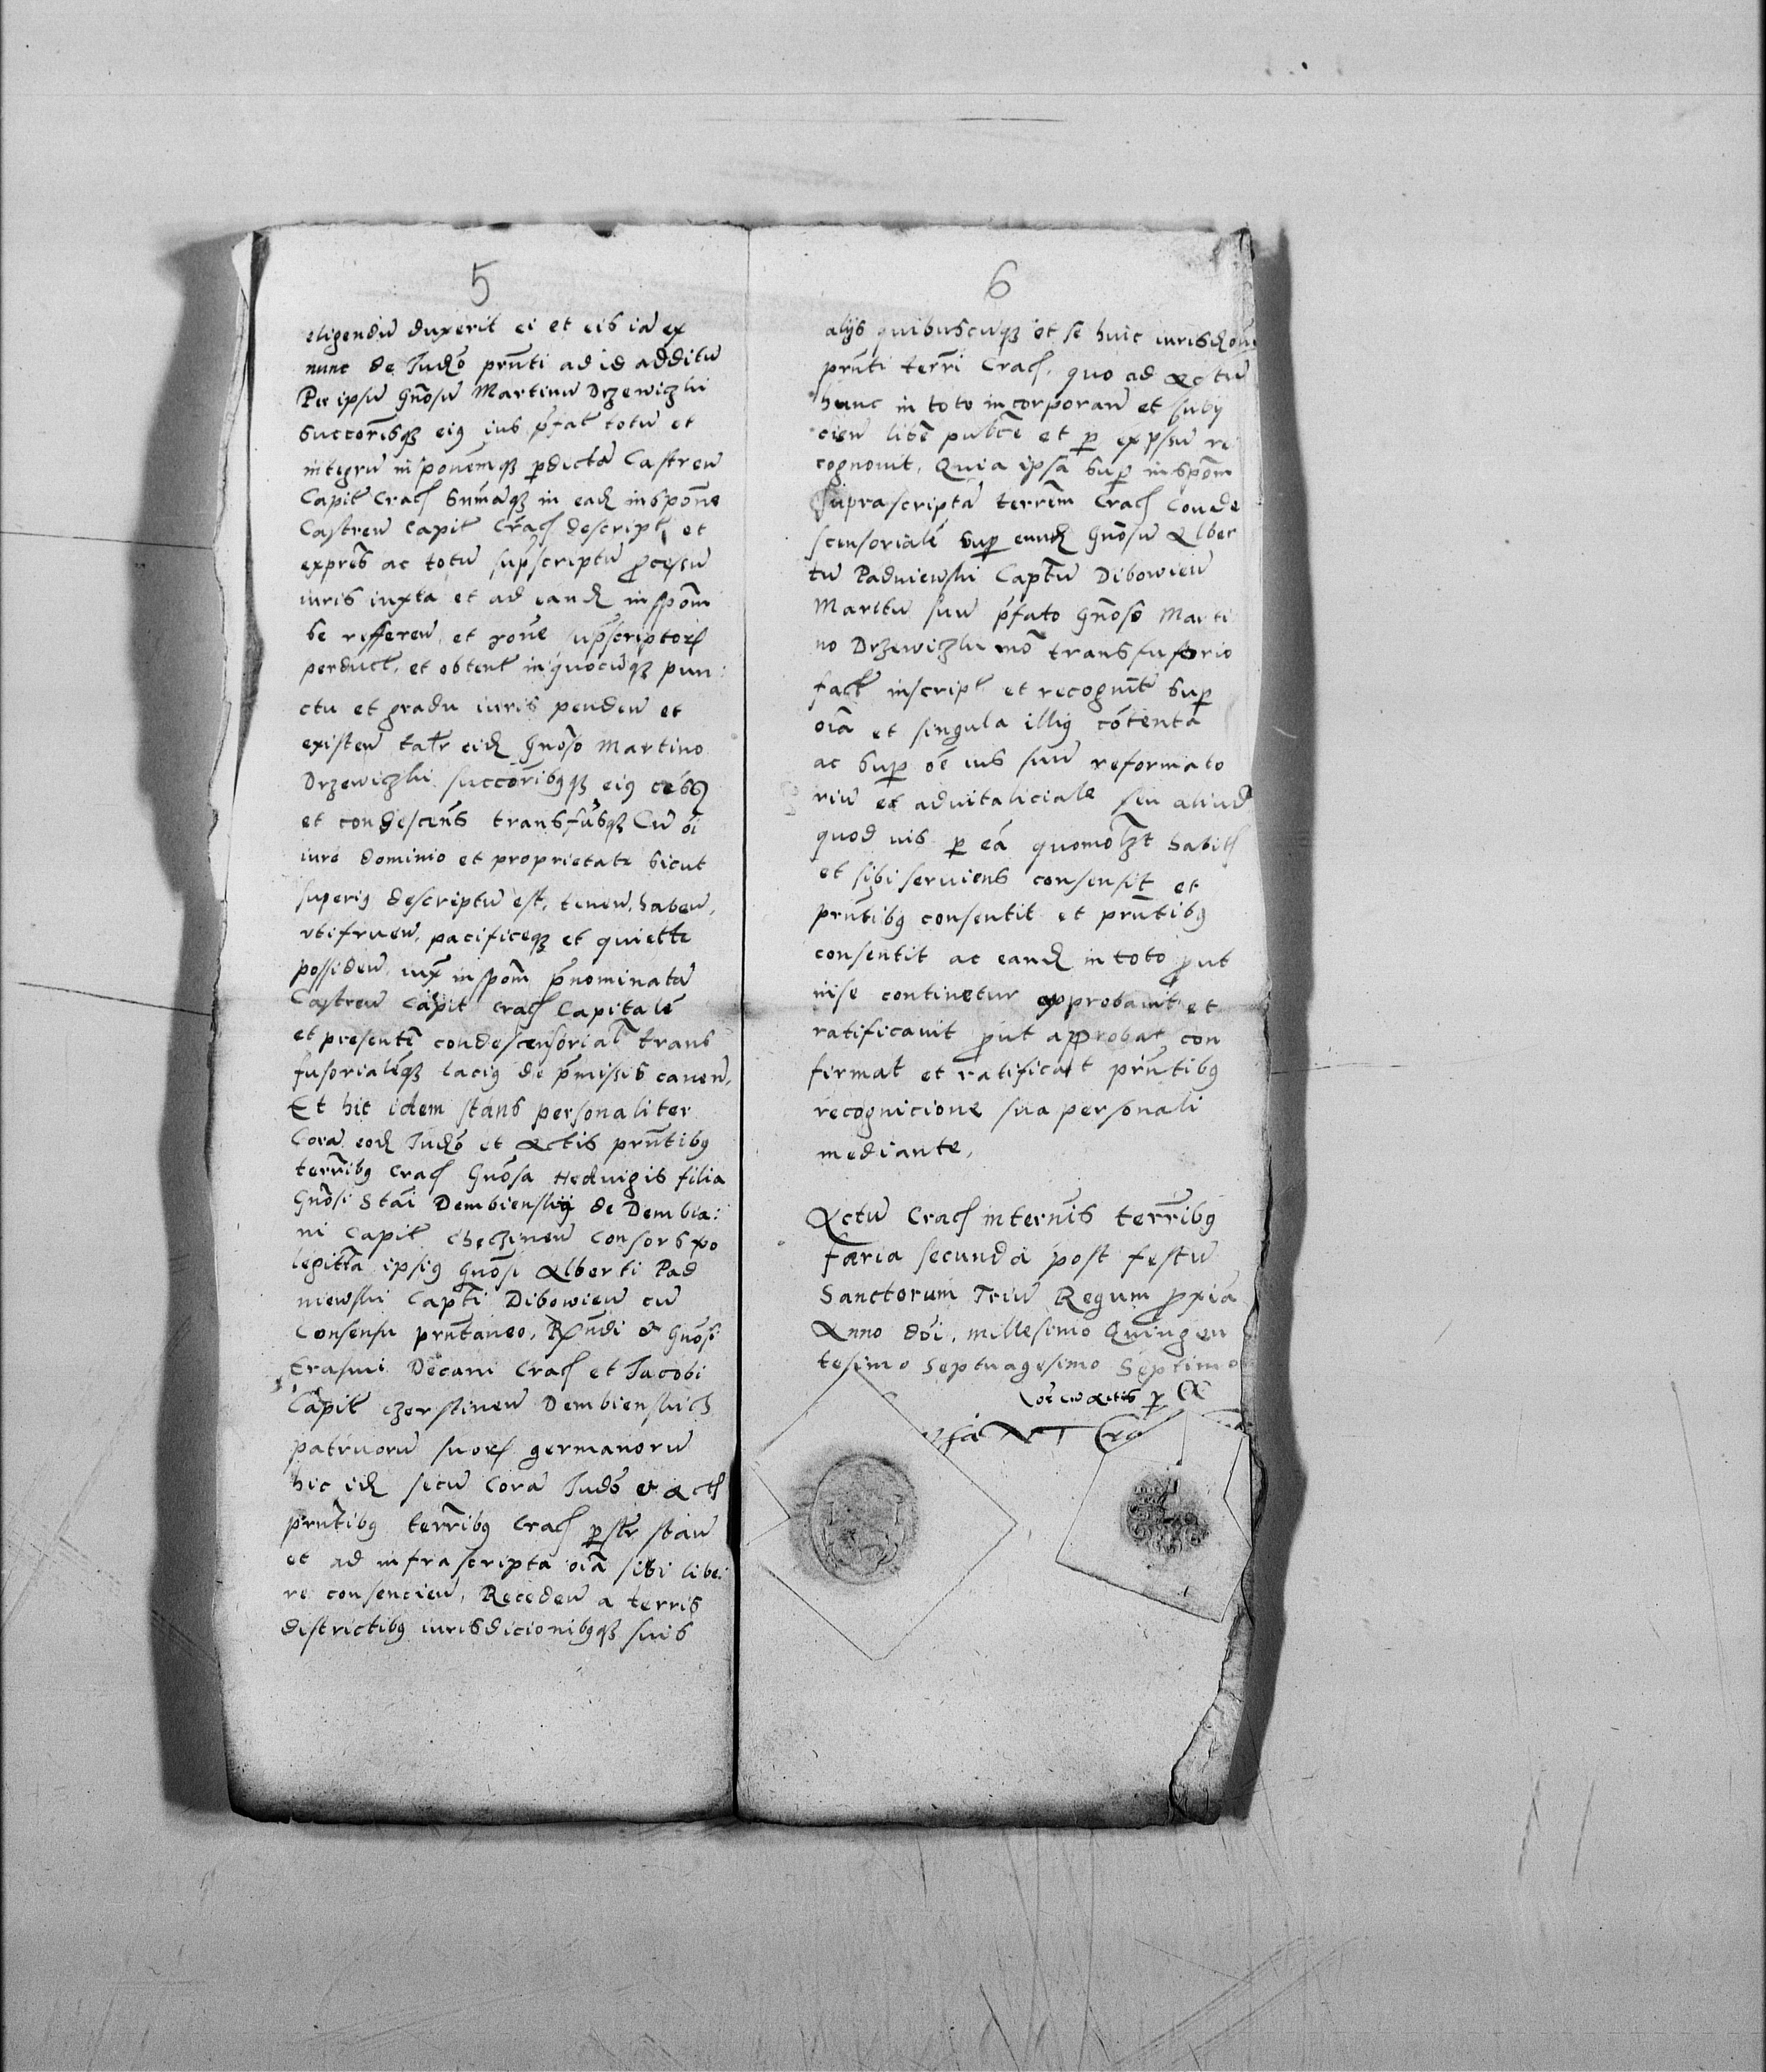 5
eligendū duxerit ei et eis iā ex
nunc de Iudō prn̄ti ad id additū
Per ipsū Gn̄osū Martinū Drzewiczki
succorīsqȝ eiꝯ ius p̄fat totū et
integrū insponēmqȝ p̱dictā Castreū
Capit Cracꝭ sum̄āqȝ in eadꝭ inspōne
Castreū Capit Cracꝭ descript et
expres̄ ac totū sup̄scriptū ꝓcessū
iuris iuxta et ad eandꝭ inspōm
se referen̄ et rōne sup̄scriptorꝭ
perduct, et obtent in quocūqȝ pun:
ctu et gradu iuris penden̄ et
existen̄ talr eidꝭ Gnōso Martino
Drzewiczki succorībꝯqȝ eiꝯ cess
et condescen̄s transfūsqȝ Cū oī
iure dominio et proprietate sicut
superiꝯ descriptū est, tenen̄, haben̄,
vtifruen̄, pacificeqȝ et quiette
possiden̄ iux inspōm p̄nominatā
Castreū Capit Cracꝭ Capitalē
et presentē condescensorialē trans
fusorialēqȝ laciꝯ de p̄missis canen̄,
Et hic idem stans personaliter
Corā eodꝭ Iudō et Actis prn̄tibꝯ
terrībꝯ Cracꝭ Gnōsa Hedvigis filia
Gnōsi Stāi Dembienskij de Dembia:
ni Capit chęczinen̄ Consors xo
legittā ipsiꝯ Gnōsi Alberti Pad
niewski Captī Dibowien̄ cū
Consensu prn̄taneo, Rn̄di et Gnōsi
Erasmi Decani Cracꝭ et Iacobi
Capit czorstinen̄ Dembienskich
patruorū suorꝭ germanorū
hic idꝭ secū Corā Iudō et Actꝭ
prn̄tibꝯ terrībꝯ Cracꝭ p̱slr stan̄
et ad infrascripta oīa sibi libe:
re consencien̄, Receden̄ a terris
districtibꝯ iurisdicionibꝯqȝ suis
6
alijs quibuscūqȝ et se huic iurisdōni
prn̄ti terrī Cracꝭ, quo ad Actū
hunc in toto incorporan̄ et subij
cien̄ libē publcē et p̱ expsū re
cognouit, Quia ipsa sup̱ inspōm
suprascriptā terrēm Cracꝭ Conde
scensorialē sup̱ eundꝭ Gnōsū Alber
tū Padniewski Captū Dibowien̄
Maritū suū p̄fato Gnōso Marti
no Drzewiczki mō transfusorio
fact inscript et recognit sup̱
oīa et singula illiꝯ cōtenta
ac sup̱ oē ius suū reformato
riū et aduitaliciale seu aliud
quod uis p̱ eā quomolȝt habitꝭ
et sibi seruiens consensit et
prn̄tibꝯ consentit et prn̄tibꝯ
consentit ac eandꝭ in toto ꝓut
in se continetur approbauit et
ratificauit ꝓut approbat con
firmat et ratificat prn̄tibꝯ
recognicione sua personali
mediante,
Actū Cracꝭ in ternīs terrībꝯ
færia secunda post festū
Sanctorum Triū Regum ꝓxiā
Anno dōi, millesimo Quingen
tesimo Septuagesimo Septimo
cū actis p̱